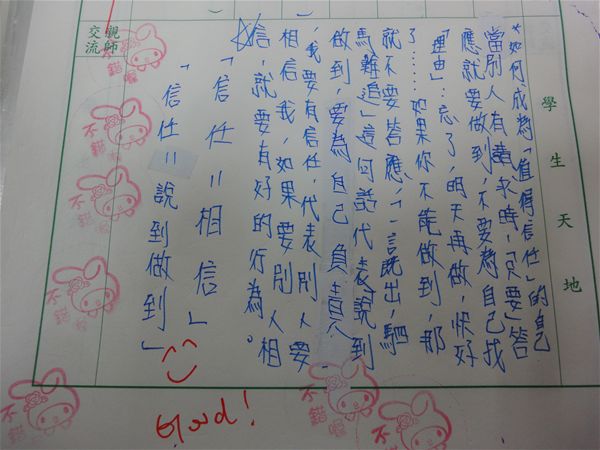 學生天地
*如何成為「值得信任」的自己
當別人有請求時,只要答
應就要做到,不要為自己找
「理由」:忘了,明天再做,快好
了……如果你不能做到,那
就不要答應,「一言既出,駟
馬難追」這句話代表說到
做到,要為自己負責
,我要有信任,代表別人要
相信我,如果要別人相
信,就要有好的行為。
「信任=相信」
「信任=說到做到」
親師交流
不錯喔
不錯喔
不錯喔
不錯喔
不錯喔
不錯喔
不錯喔
Good!